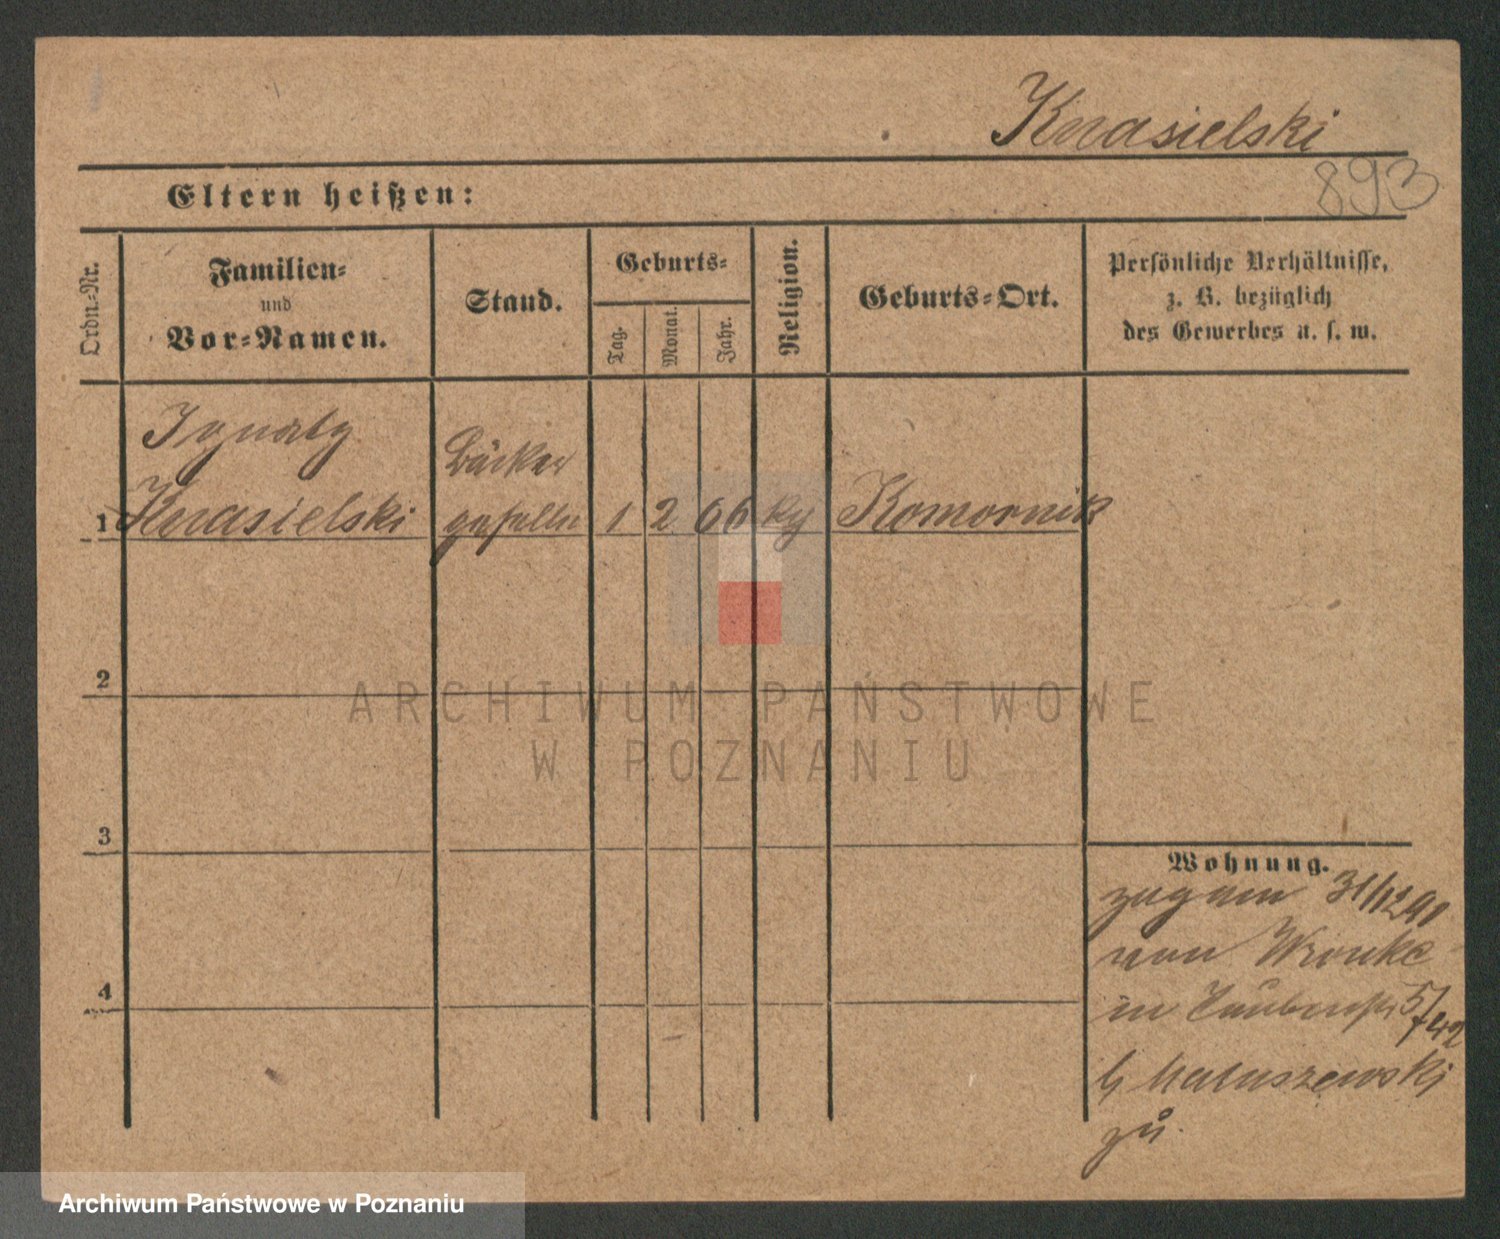 Knasielski
893
Eltern heißen:
Ordn.-Nr.
Familien-
und
Vor-Namen.
Stand.
Geburts-
Tag.
Monat.
Jahr.
Religion.
Geburts-Ort.
Persönliche Verhältnisse,
z. B. bezüglich
des Gewerbes u. s. w.
Ignatz
Bäcker
1 Knasielski geselle 1 2 66 Komornik
2
3
4
Wohnung.
31/12 90
von Wronke
in 5/
742
b Matuszewski
zu.
ARCHIWUM PAŃSTWOWE
W POZNANIU
Archiwum Państwowe w Poznaniu